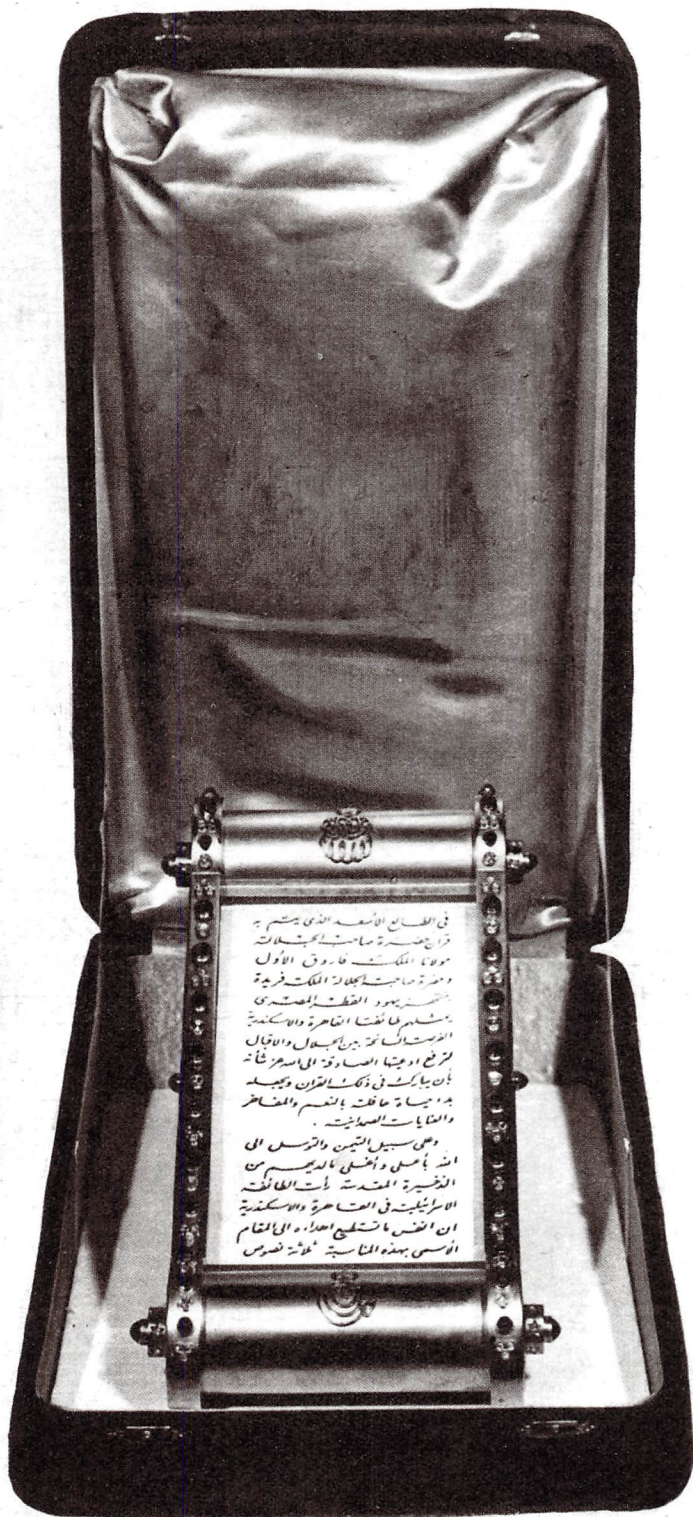 فى الطالع الأسعد الذى يتم به
قران حضرة صاحب الجلالة
مولانا الملك فاروق الأول
وحضرة صاحبة الجلالة الملكة فريدة
يهود القطر المصرى
طائفتا القاهرة والاسكندرية
الفرصة السانحة بين الجلال والاقبال
لترفع ادعيتها الصادقة الى الله عز شأنه
بأن يبارك فى ذلك القران ويجعله
بدء حياة حافلة بالنعم والمفاخر
والعنايات الصمدانية .
وعلى سبيل التيمن والتوسل الى
الله بأعلى وأغلى مالديهم من
الذخيرة المقدسة رأت الطائفة
الاسرائيلية فى القاهرة والاسكندرية
ان انفس ماتستطيع اهداءه الى المقام
الأسمى بهذه المناسبة ثلاثة نصوص